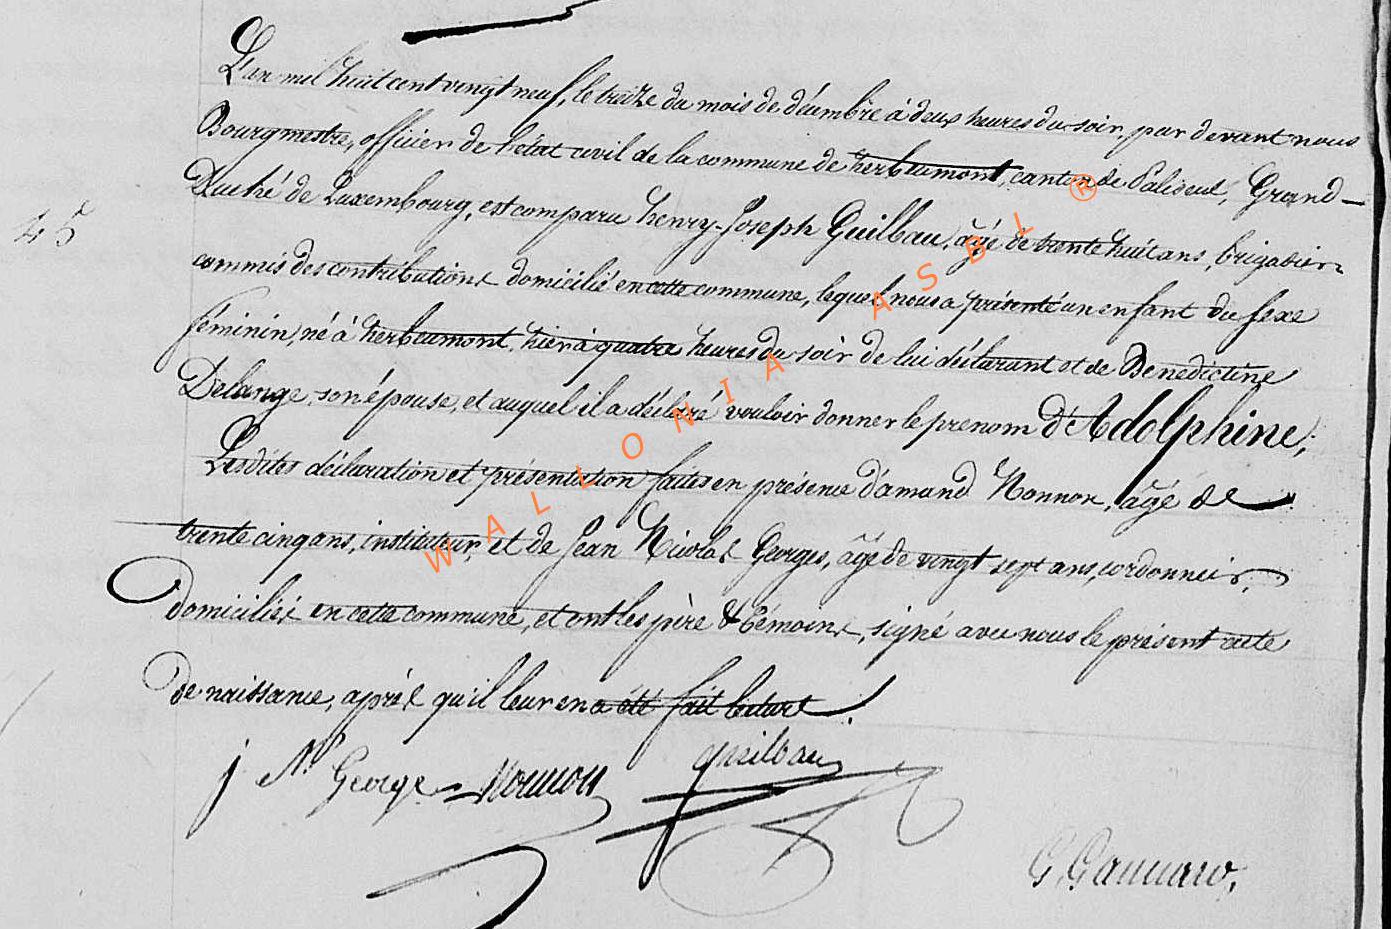 L'an mil huit cent vingt neuf, le treize du mois de décembre à deux heures du soir, par devant nous
Bourgmestre, officier de l'état civil de la commune de herbeumont, canton de Paliseul, Grand-
Duché de Luxembourg, est comparu henry-Joseph Guilbau, âgé de trente huit ans, brigadier
commis des contributions domicilié en cette commune, lequel nous a présenté un enfant du sexe
féminin, né à herbeumont, hier à quatre heures du soir de lui déclarant et de Benedictine
Delange, son épouse, et auquel il a déclaré vouloir donner le prenom d'Adolphine,
45
Lesdites déclaration et présentation faites en présence d'amand Nonnon, âgé de
trente cinq ans, instituteur, et de Jean Nicolas Georges, âgé de vingt sept ans, cordonnier,
domiciliés en cette commune, et ont les père & témoins, signé avec nous le présent acte
de naissance, après qu'il leur en a été fait lecture.
j N. George Nonnon guilbau
WALLONIA ASBL ®